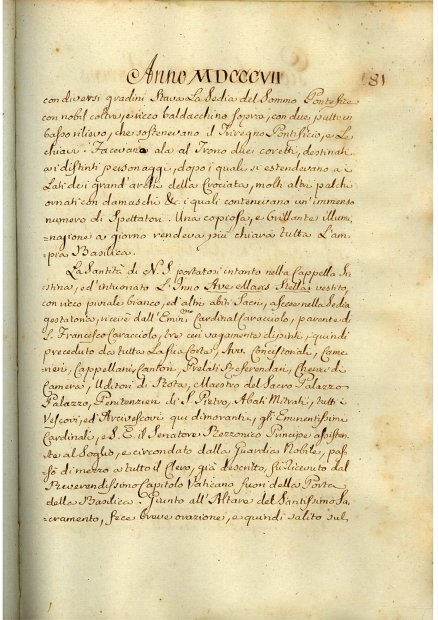 Anno MDCCCVII
181
con diversi gradini stava La Sedia del Sommo Pontefice
con nobil coltre, e ricco baldacchino sopra, con due putti in
basso rilievo, che sostenevano il Triregno Pontificio, e Le
chiavi. Facevano ala al Trono due coretti, destinati
a i distinti personaggi, dopo i quali si estendevano a i
Lati de i grand'archi della Crociata, molti altri palchi
ornati con damaschi &c i quali contenevano un'immenso
numero di Spettatori. Una copiosa, e brillante illumi-
-nazione a giorno rendeva più chiara tutta L'am-
-pia Basilica.
La Santità di N. S. portatosi intanto nella Cappella Si-
-stina, ed intuonato L'Inno Ave Maris Stella vestito,
con ricco piviale bianco, ed altri abiti Sacri, ascese nella Sedia
gestatoria, riceve dall'Emin.mo Cardinal Caracciolo, parente di
S. Francesco Caracciolo, tre ceri vagamente dipinti, quindi
preceduto da tutta La sua Corte, Avv. Concistoriali, Came-
-rieri, Cappellani, Cantori, Prelati Referendari, Cher. di
Camera, Uditori di Rota, Maestro del Sacro Palazzo
Palazzo, Penitenzieri di S. Pietro, Abati Mitrati, tutti i
Vescovi, ed Arcivescovi qui dimoranti, gli Eminentissimi
Cardinali, e S. E. il Senatore Rezzonico Principe assisten-
-te al Soglio, e circondato dalla Guardia Nobile, pas-
-sò di mezzo a tutto il Clero, già descritto, fu ricevuto dal
Reverendissimo Capitolo Vaticano fuori della Porta
della Basilica. Giunto all'Altare del Santissimo Sa-
-cramento, fece breve orazione, e quindi salito sul